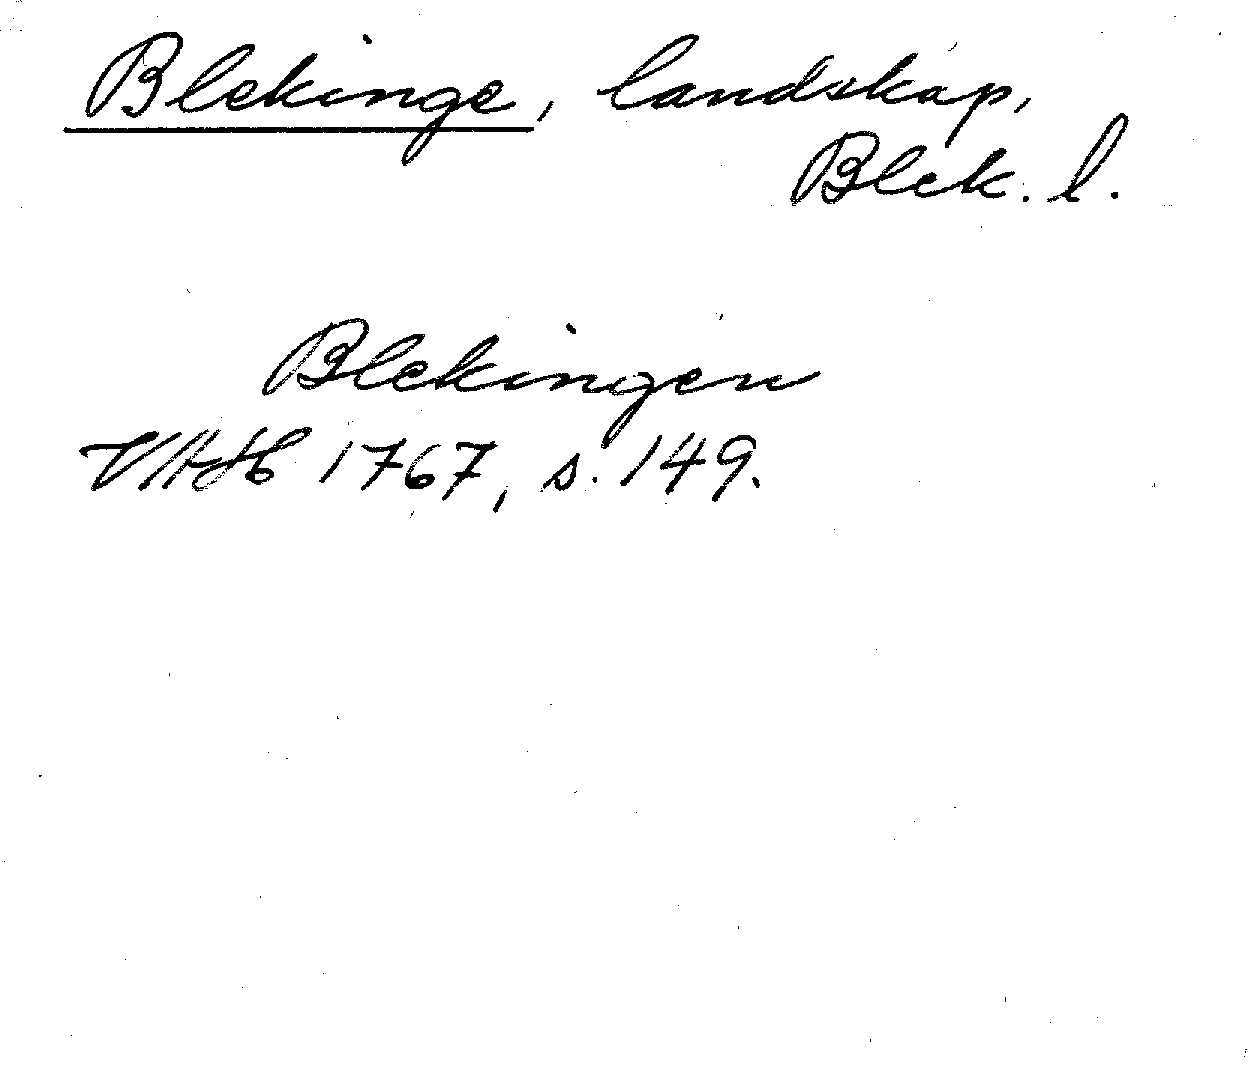 Blekinge, landskap,
Blek. l.
Blekingen
VAH 1767, s. 149.